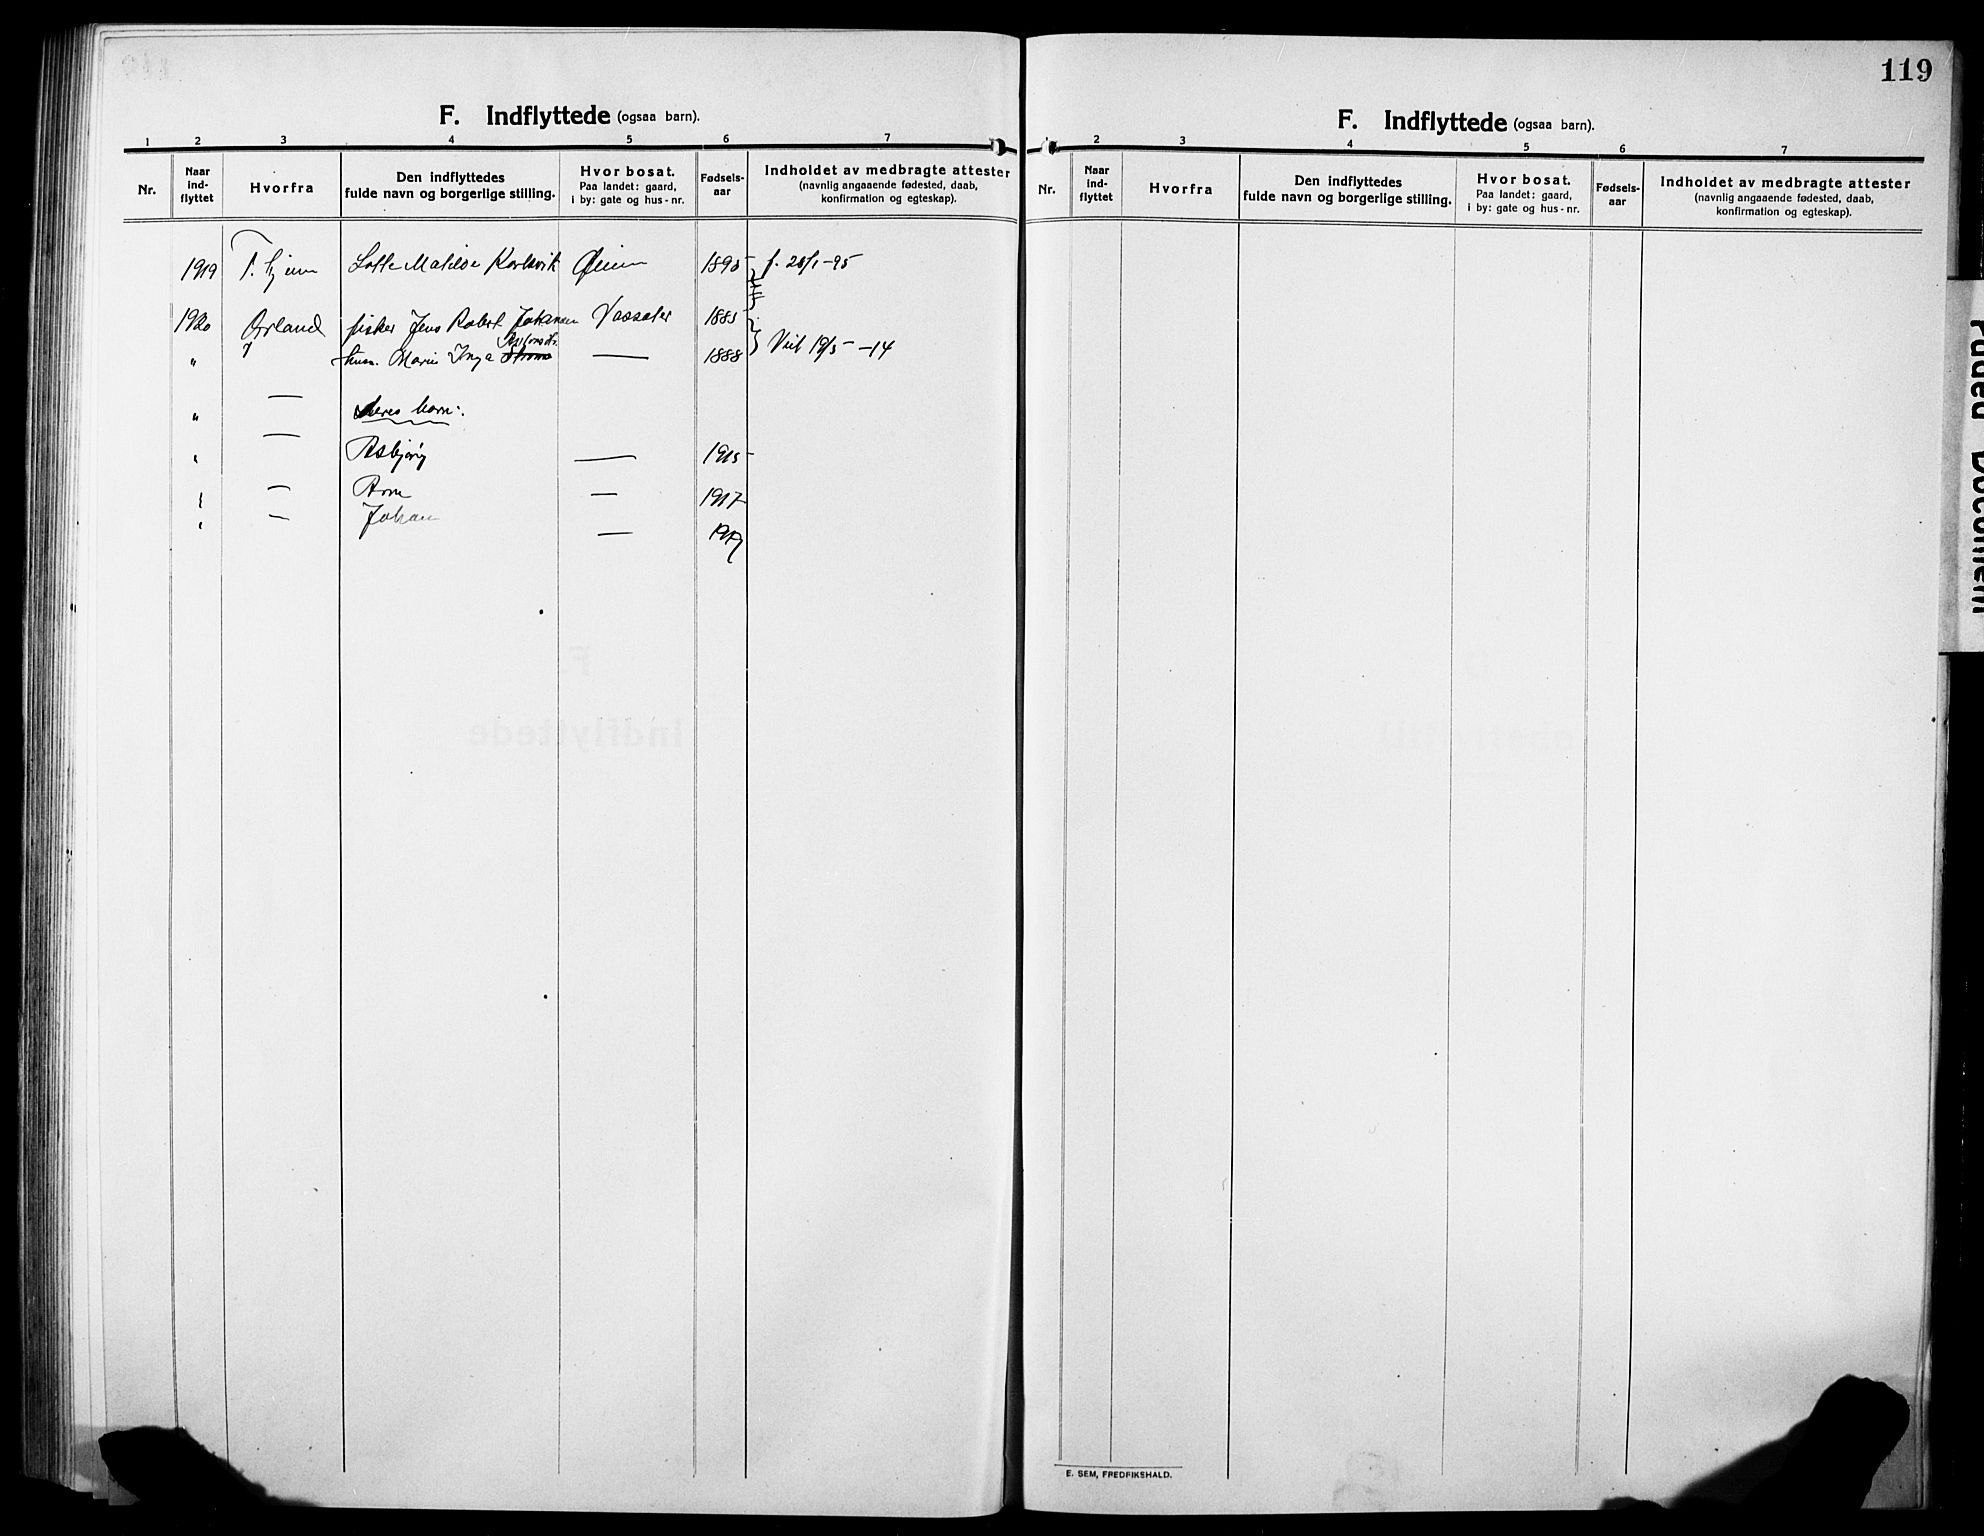 119
F. Indflyttede (ogsaa barn).
1 2 3 4 5 6 7
Nr. Naar ind-flyttet Hvorfra Den indflyttedes fulde navn og borgerlige stilling. Hvor bosat. Paa landet: gaard, i by: gate og hus-nr. Fødsels-aar Indholdet av medbragte attester (navnlig angaaende fødested, daab, konfirmation og egteskap).
1919 T.hjem Lotte Matilde Karlsvik Øien 1895 f. 28/1-95
1920 Ørland fisker Jens Robert Johansen Vassæter 1885
" hus. Marie Inga — 1888 Viet 19/5-14
" — deres barn:
" — Asbjørg — 1915
" — Arne — 1917
" — Johan — 1919
F. Indflyttede (ogsaa barn).
2 3 4 5 6 7
Nr. Naar ind-flyttet Hvorfra Den indflyttedes fulde navn og borgerlige stilling. Hvor bosat. Paa landet: gaard, i by: gate og hus-nr. Fødsels-aar Indholdet av medbragte attester (navnlig angaaende fødested, daab, konfirmation og egteskap).
E. SEM, FREDRIKSHALD.